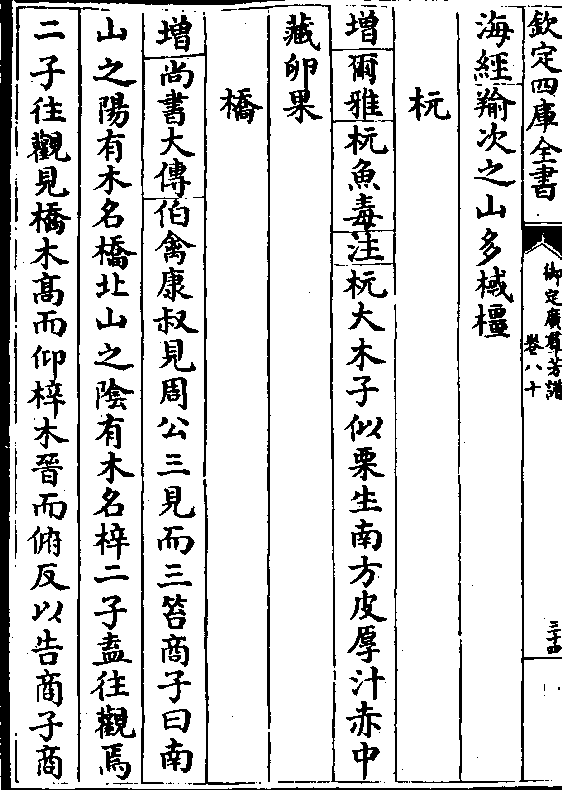 欽定四庫全書
御定廣羣芳譜
卷八十
三十四
海經羭次之山多棫橿
杬
增爾雅杬魚毒注杬大木子似栗生南方皮厚汁赤中
藏卵果
橋
增尚書大傳伯禽康叔見周公三見而三笞商子曰南
山之陽有木名橋北山之陰有木名梓二子盍往觀焉
二子往觀見橋木高而仰梓木晉而俯反以告商子商